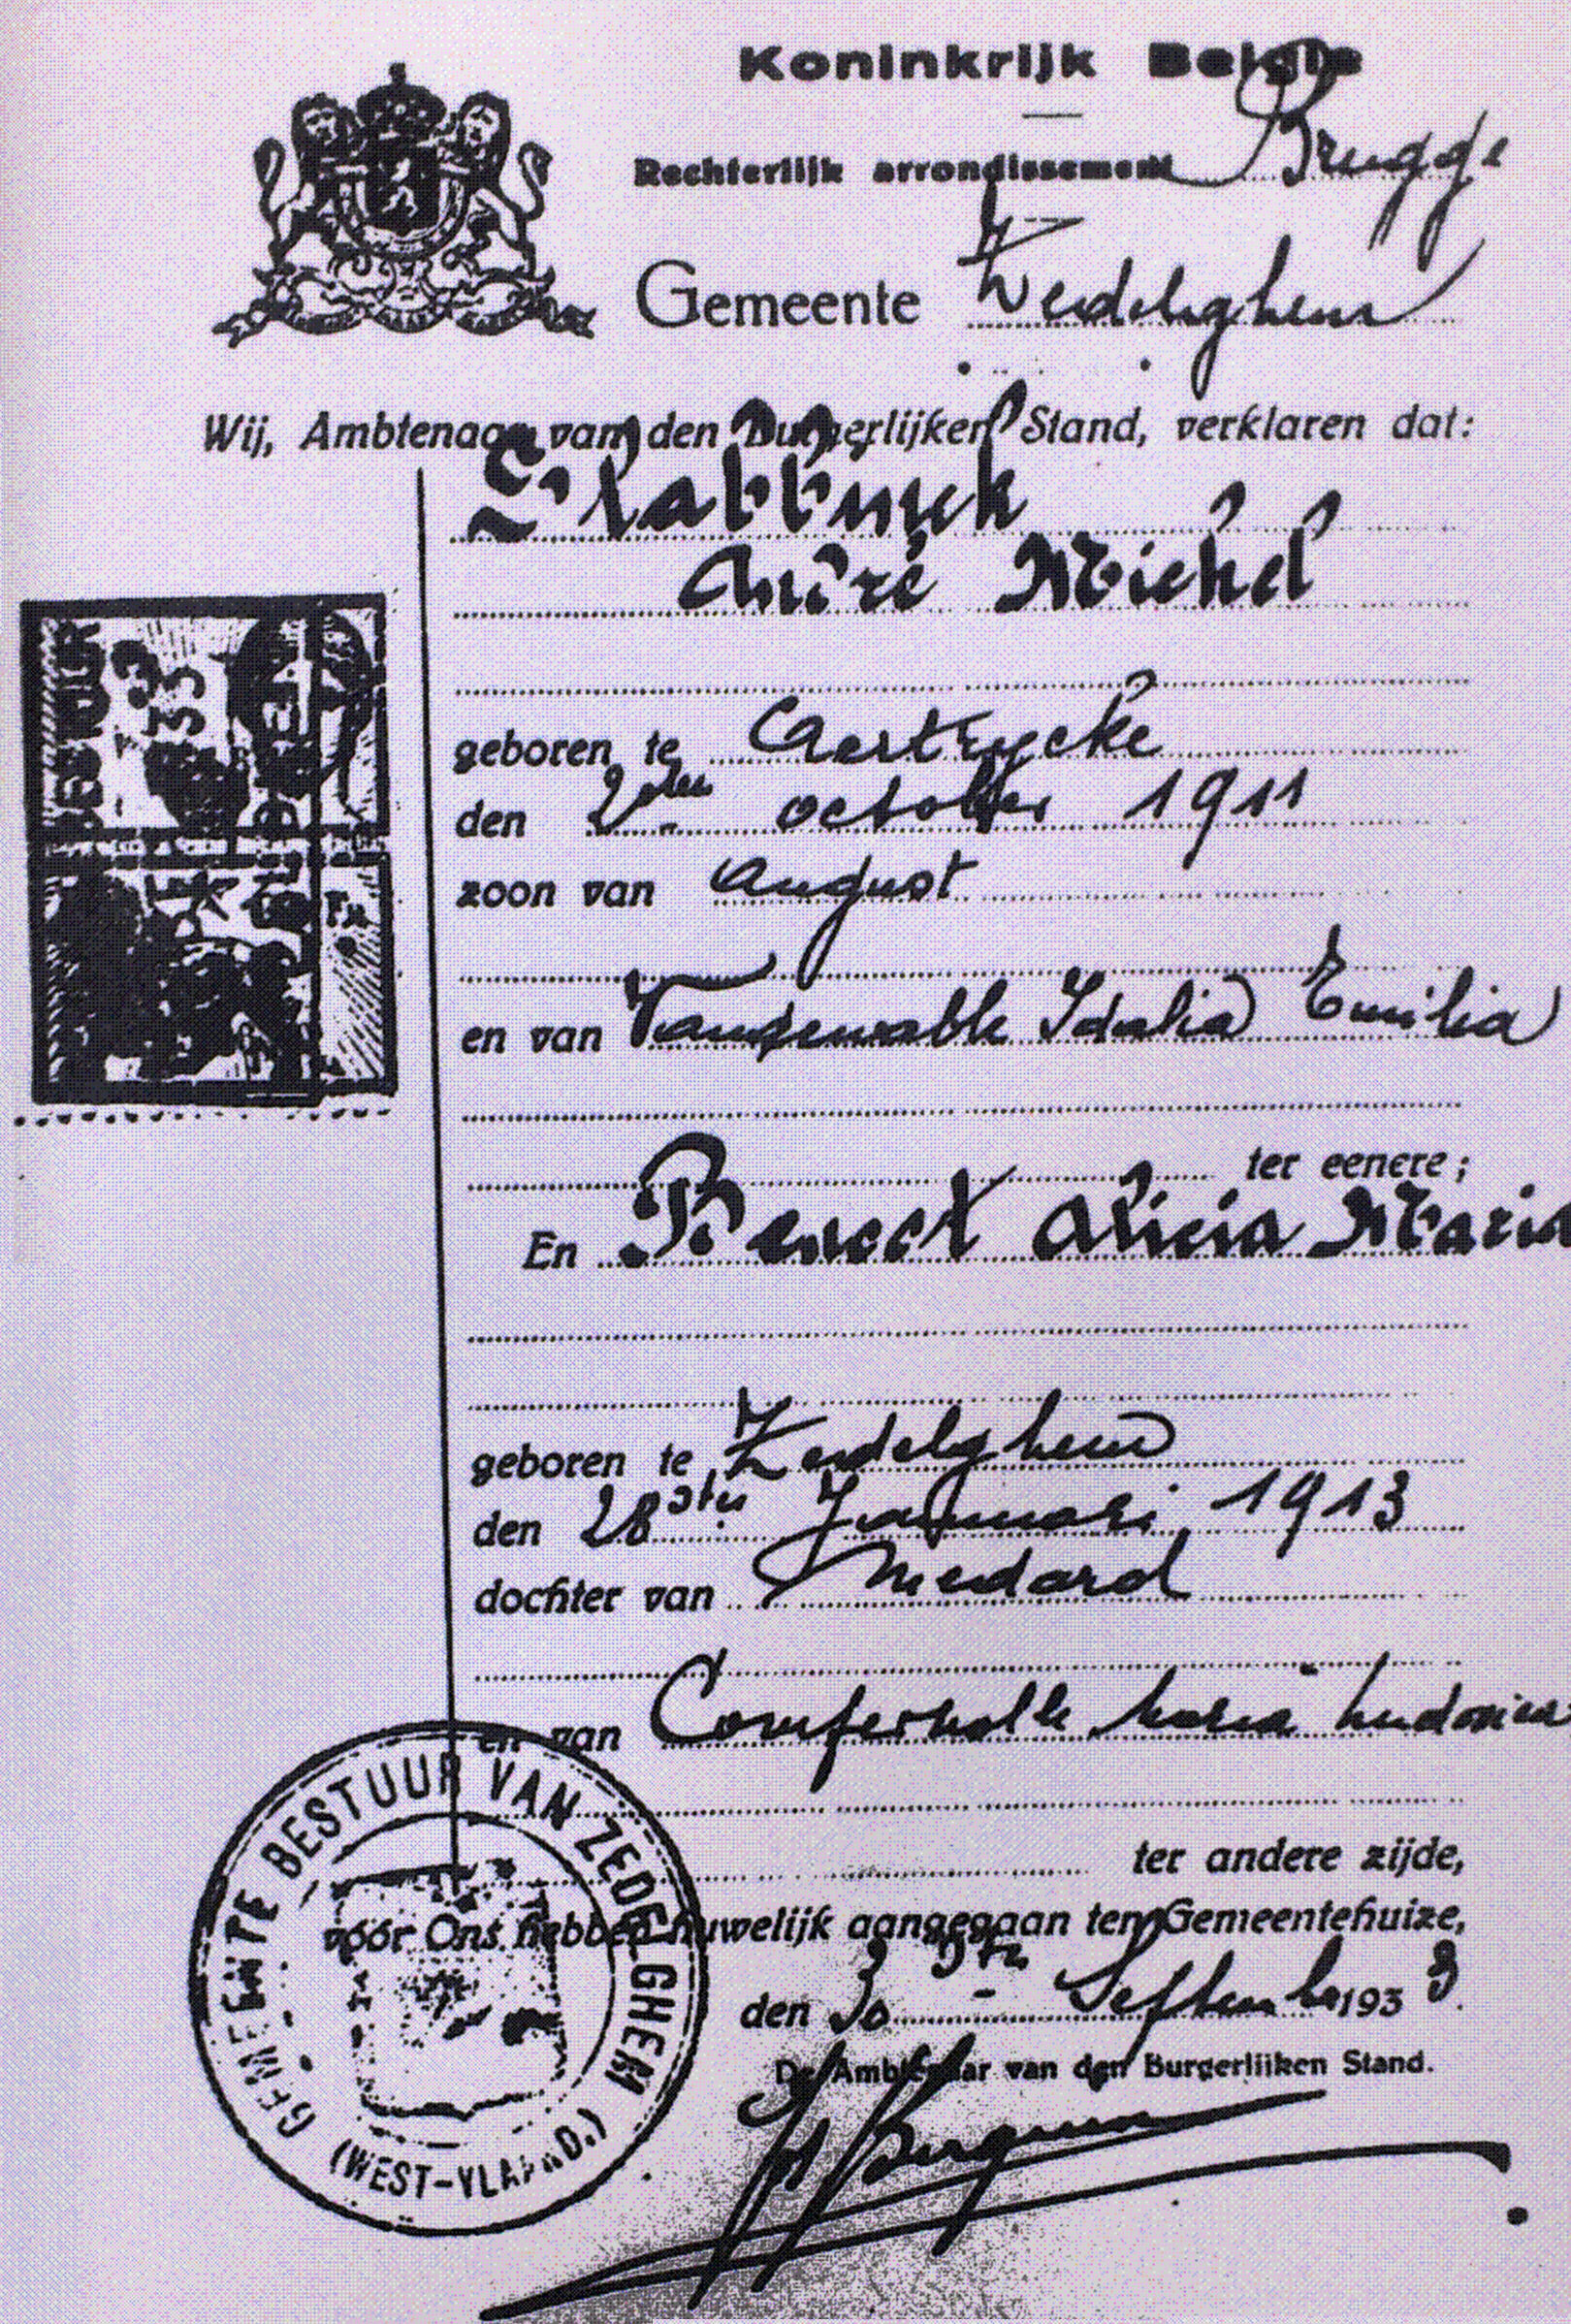 Koninkrijk België
Rechterlijk arrondissement Brugge
Gemeente Zedelghem
Wij, Ambtenaar van den Burgerlijken Stand, verklaren dat:
Slabbinck
André Michel
geboren te Aertrycke
den 2den october 1911
zoon van August
en van Idalia Emilia
ter eenere;
En Benoot Alicia Maria
geboren te Zedelghem
den 28sten Januari 1913
dochter van Medard
en van Maria Ludovica
ter andere zijde,
vóór Ons hebben huwelijk aangegaan ten Gemeentehuize,
den 30sten September 1933.
De Ambtenaar van den Burgerlijken Stand.
GEMEENTE BESTUUR VAN ZEDELGHEM
(WEST-VLAAND.)